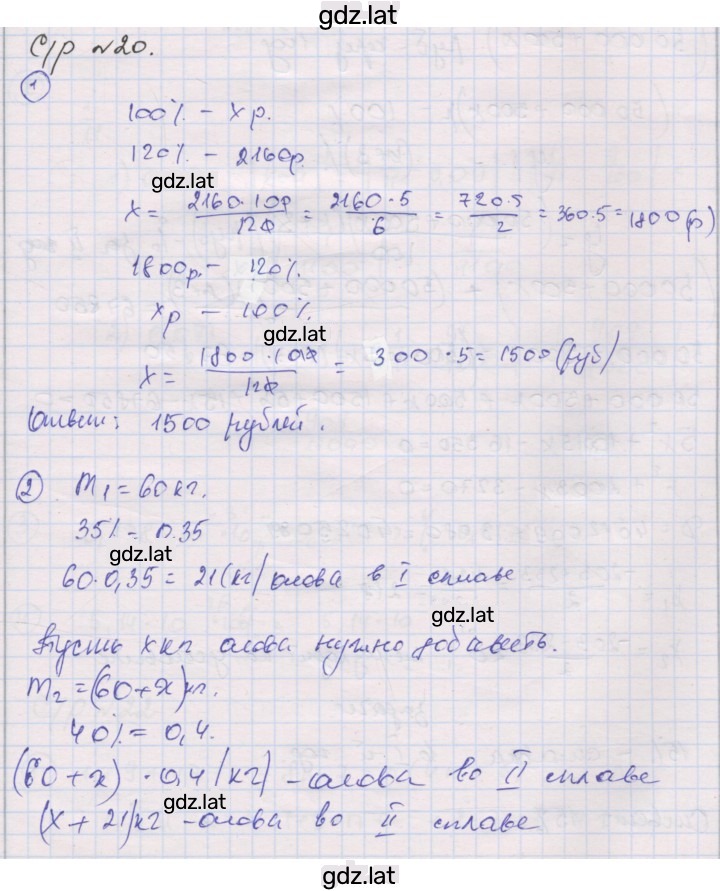 gdz.lat
С/р №20.
1
100% - x р.
120% - 2160р.
gdz.lat
x = 2160·100/120 = 2160·5/6 = 720·5/2 = 360·5 = 1800(р)
1800р. - 120%.
xр - 100%.
gdz.lat
x = 1800·100/120 = 300·5 = 1500(руб)
Ответ: 1500 рублей.
2 m₁ = 60кг.
35% = 0.35
gdz.lat
60·0,35 = 21(кг) олова в I сплаве
gdz.lat
Пусть x кг олова нужно добавить.
m₂ = (60+x)кг.
40% = 0,4.
(60+x)·0,4(кг) - олова во II сплаве
gdz.lat
(x+21)кг - олова во II сплаве
gdz.lat